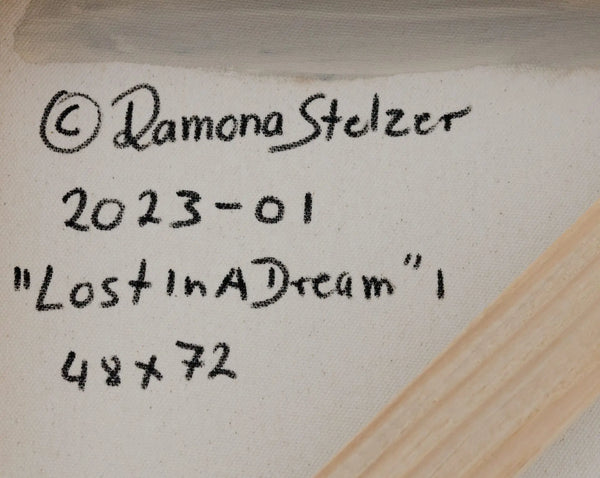 © Ramona Stelzer
2023-01
"Lost In A Dream" 1
48 x 72